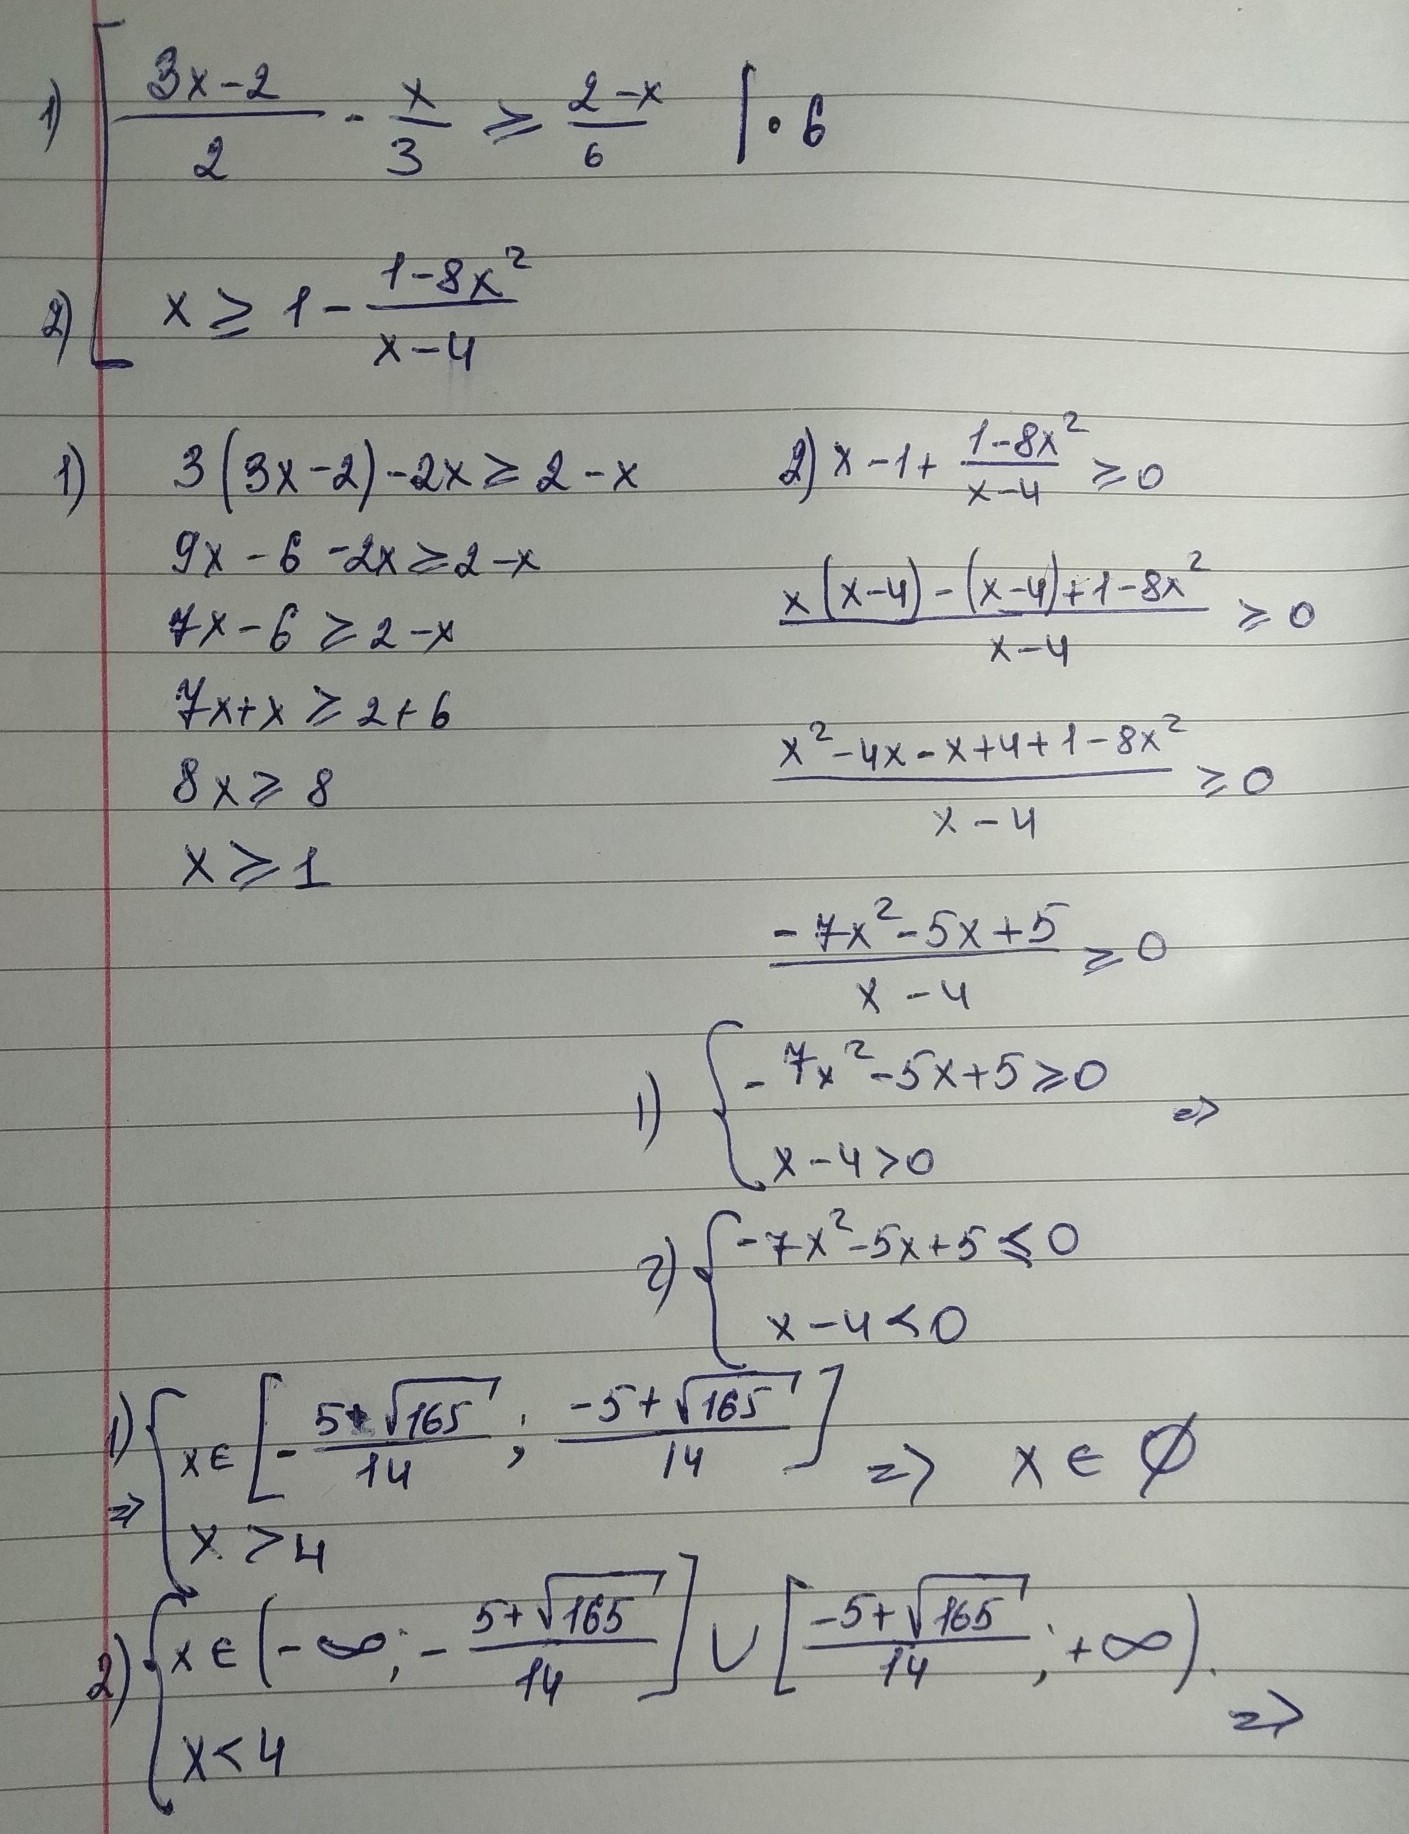 1) [ (3x-2)/2 - x/3 ≥ (2-x)/6 | · 6
2) [ x ≥ 1 - (1-8x²)/(x-4)
1) 3(3x-2)-2x ≥ 2-x
9x-6-2x ≥ 2-x
7x-6 ≥ 2-x
7x+x ≥ 2+6
8x ≥ 8
x ≥ 1
2) x-1+ (1-8x²)/(x-4) ≥ 0
(x(x-4)-(x-4)+1-8x²)/(x-4) ≥ 0
(x²-4x-x+4+1-8x²)/(x-4) ≥ 0
(-7x²-5x+5)/(x-4) ≥ 0
1) { -7x²-5x+5 ≥ 0 =>
x-4 > 0
2) { -7x²-5x+5 ≤ 0
x-4 < 0
1) => { x ∈ [ -(5+√165)/14 ; (-5+√165)/14 ] => x ∈ ∅
x > 4
2) { x ∈ (-∞; -(5+√165)/14 ] ∪ [ (-5+√165)/14 ; +∞). =>
x < 4